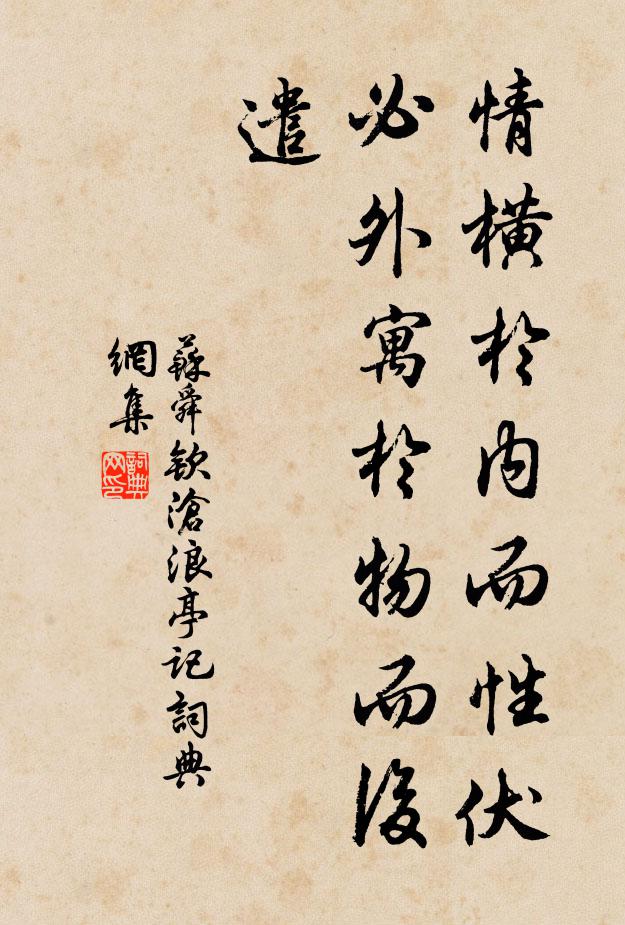 情橫於内而性伏
必外寓於物而後
遣
蘇舜欽滄浪亭記詞典
網集
詞典
网印